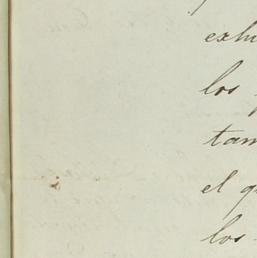 exhi
los
tam
el qu
los